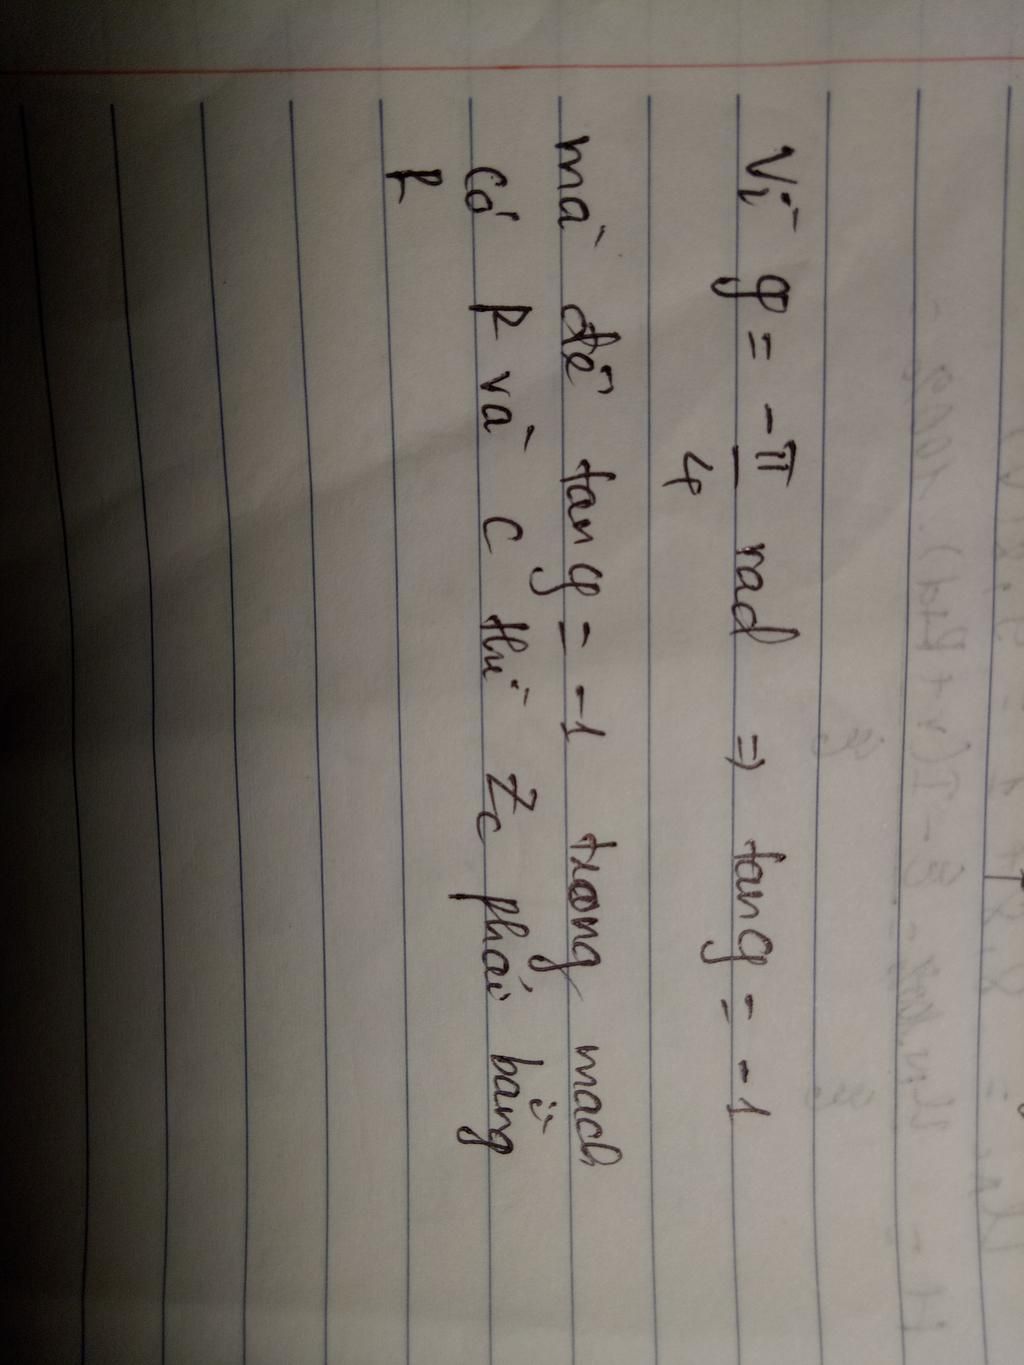 Vì φ = -π/4 rad => tan φ = -1
mà để tan φ = -1 trong mach
có R và C thì Zc phải bằng
R